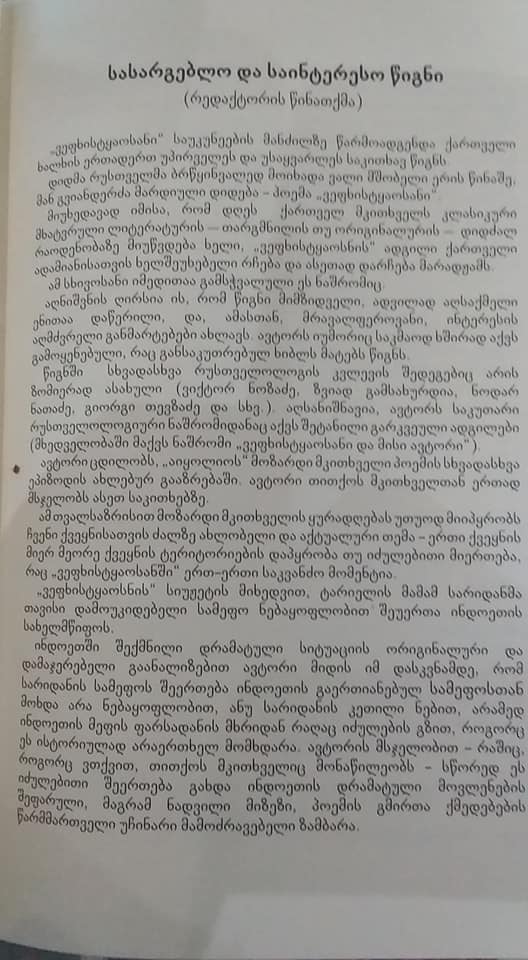 სასარგებლო და საინტერესო წიგნი
(რედაქტორის წინათქმა)
„ვეფხისტყაოსანი“ საუკუნეების მანძილზე წარმოადგენდა ქართველი
ხალხის ერთადერთ უპირველეს და უსაყვარლეს საკითხავ წიგნს.
დიდმა რუსთველმა ბრწყინვალედ მოიხადა ვალი მშობელი ერის წინაშე,
მან გვიანდერძა მარდიული დიდება – პოემა „ვეფხისტყაოსანი“.
მიუხედავად იმისა, რომ დღეს ქართველ მკითხველს კლასიკური
მხატვრული ლიტერატურის – თარგმნილის თუ ორიგინალურის – დიდძალ
რაოდენობაზე მიუწვდება ხელი, „ვეფხისტყაოსნის“ ადგილი ქართველი
ადამიანისათვის ხელშეუხებელი რჩება და ასეთად დარჩება მარადჟამს.
ამ სხივოსანი იმედითაა გამსჭვალული ეს ნაშრომიც.
აღნიშვნის ღირსია ის, რომ წიგნი მიმზიდველი, ადვილად აღსაქმელი
ენითაა დაწერილი, და, ამასთან, მრავალფეროვანი, ინტერესის
აღმძვრელი განმარტებები ახლავს. ავტორს იუმორიც საკმაოდ ხშირად აქვს
გამოყენებული, რაც განსაკუთრებულ ხიბლს მატებს წიგნს.
წიგნში სხვადასხვა რუსთველოლოგის კვლევის შედეგებიც არის
ზომიერად ასახული (ვიქტორ ნოზაძე, ზვიად გამსახურდია, ნოდარ
ნათაძე, გიორგი თევზაძე და სხვ.). აღსანიშნავია, ავტორს საკუთარი
რუსთველოლოგიური ნაშრომიდანაც აქვს შეტანილი გარკვეული ადგილები
(მხედველობაში მაქვს ნაშრომი „ვეფხისტყაოსანი და მისი ავტორი“).
ავტორი ცდილობს, „აიყოლიოს“ მოზარდი მკითხველი პოემის სხვადასხვა
ეპიზოდის ახლებურ გააზრებაში. ავტორი თითქოს მკითხველთან ერთად
მსჯელობს ასეთ საკითხებზე.
ამ თვალსაზრისით მოზარდი მკითხველის ყურადღებას უთუოდ მიიპყრობს
ჩვენი ქვეყნისათვის ძალზე ახლობელი და აქტუალური თემა – ერთი ქვეყნის
მიერ მეორე ქვეყნის ტერიტორიების დაპყრობა თუ იძულებითი მიერთება,
რაც „ვეფხისტყაოსანში“ ერთ–ერთი საკვანძო მომენტია.
„ვეფხისტყაოსნის“ სიუჟეტის მიხედვით, ტარიელის მამამ სარიდანმა
თავისი დამოუკიდებელი სამეფო ნებაყოფლობით შეუერთა ინდოეთის
სახელმწიფოს.
ინდოეთში შექმნილი დრამატული სიტუაციის ორიგინალური და
დამაჯერებელი გაანალიზებით ავტორი მიდის იმ დასკვნამდე, რომ
სარიდანის სამეფოს შეერთება ინდოეთის გაერთიანებულ სამეფოსთან
მოხდა არა ნებაყოფლობით, ანუ სარიდანის კეთილი ნებით, არამედ
ინდოეთის მეფის ფარსადანის მხრიდან რაღაც იძულების გზით, როგორც
ეს ისტორიულად არაერთხელ მომხდარა. ავტორის მსჯელობით – რაშიც,
როგორც ვთქვით, თითქოს მკითხველიც მონაწილეობს – სწორედ ეს
იძულებითი შეერთება გახდა ინდოეთის დრამატული მოვლენების
შეფარული, მაგრამ ნადვილი მიზეზი, პოემის გმირთა ქმედებების
წარმმართველი უჩინარი მამოძრავებელი ზამბარა.